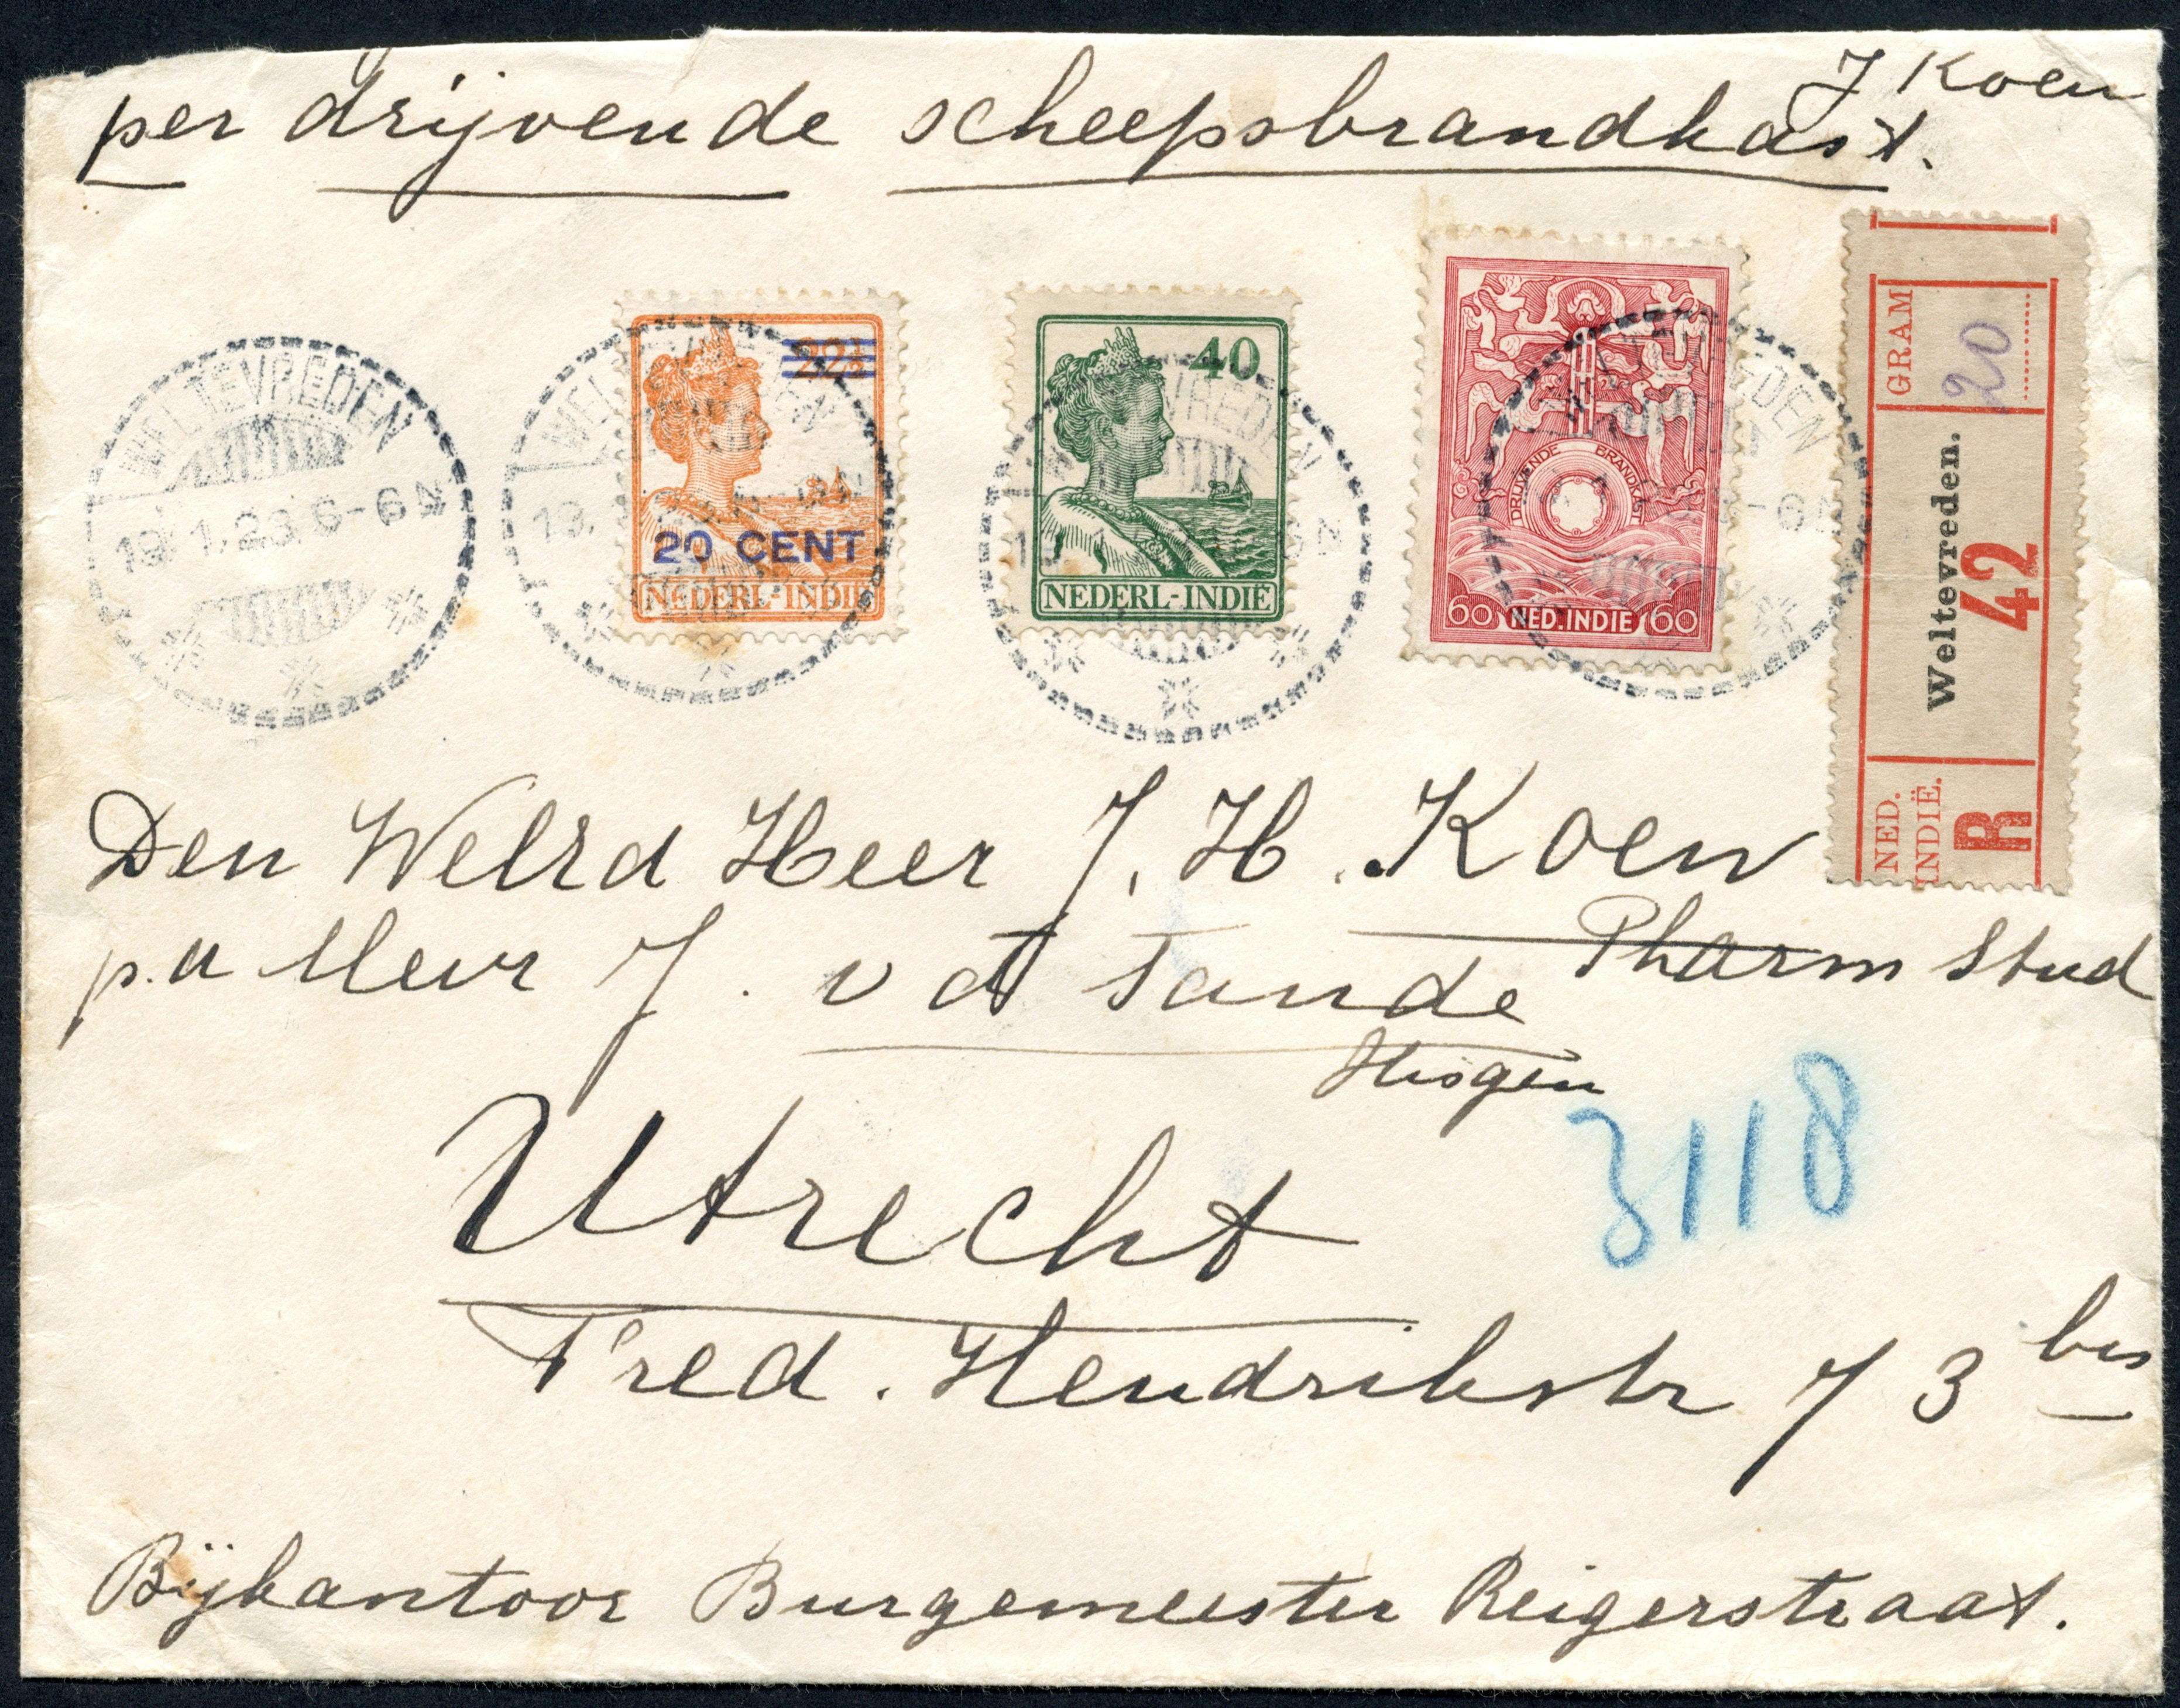 J Koen
per drijvende scheepsbrandkast.
WELTEVREDEN
19.1.23 6-6N
22½
20 CENT
NEDERL-INDIE
40
NEDERL-INDIE
DRIJVENDE BRANDKAST
60 NED.INDIE 60
VREDEN
NED. INDIË.
R
Weltevreden.
42
GRAM
20
Den Welrd Heer J. H. Koen
Pharm Stud
p.a Mevr J. v d Tande
Utrecht
3118
Fred. Hendrikstr 73 bis
Bijkantoor Burgemeester Reigerstraat.